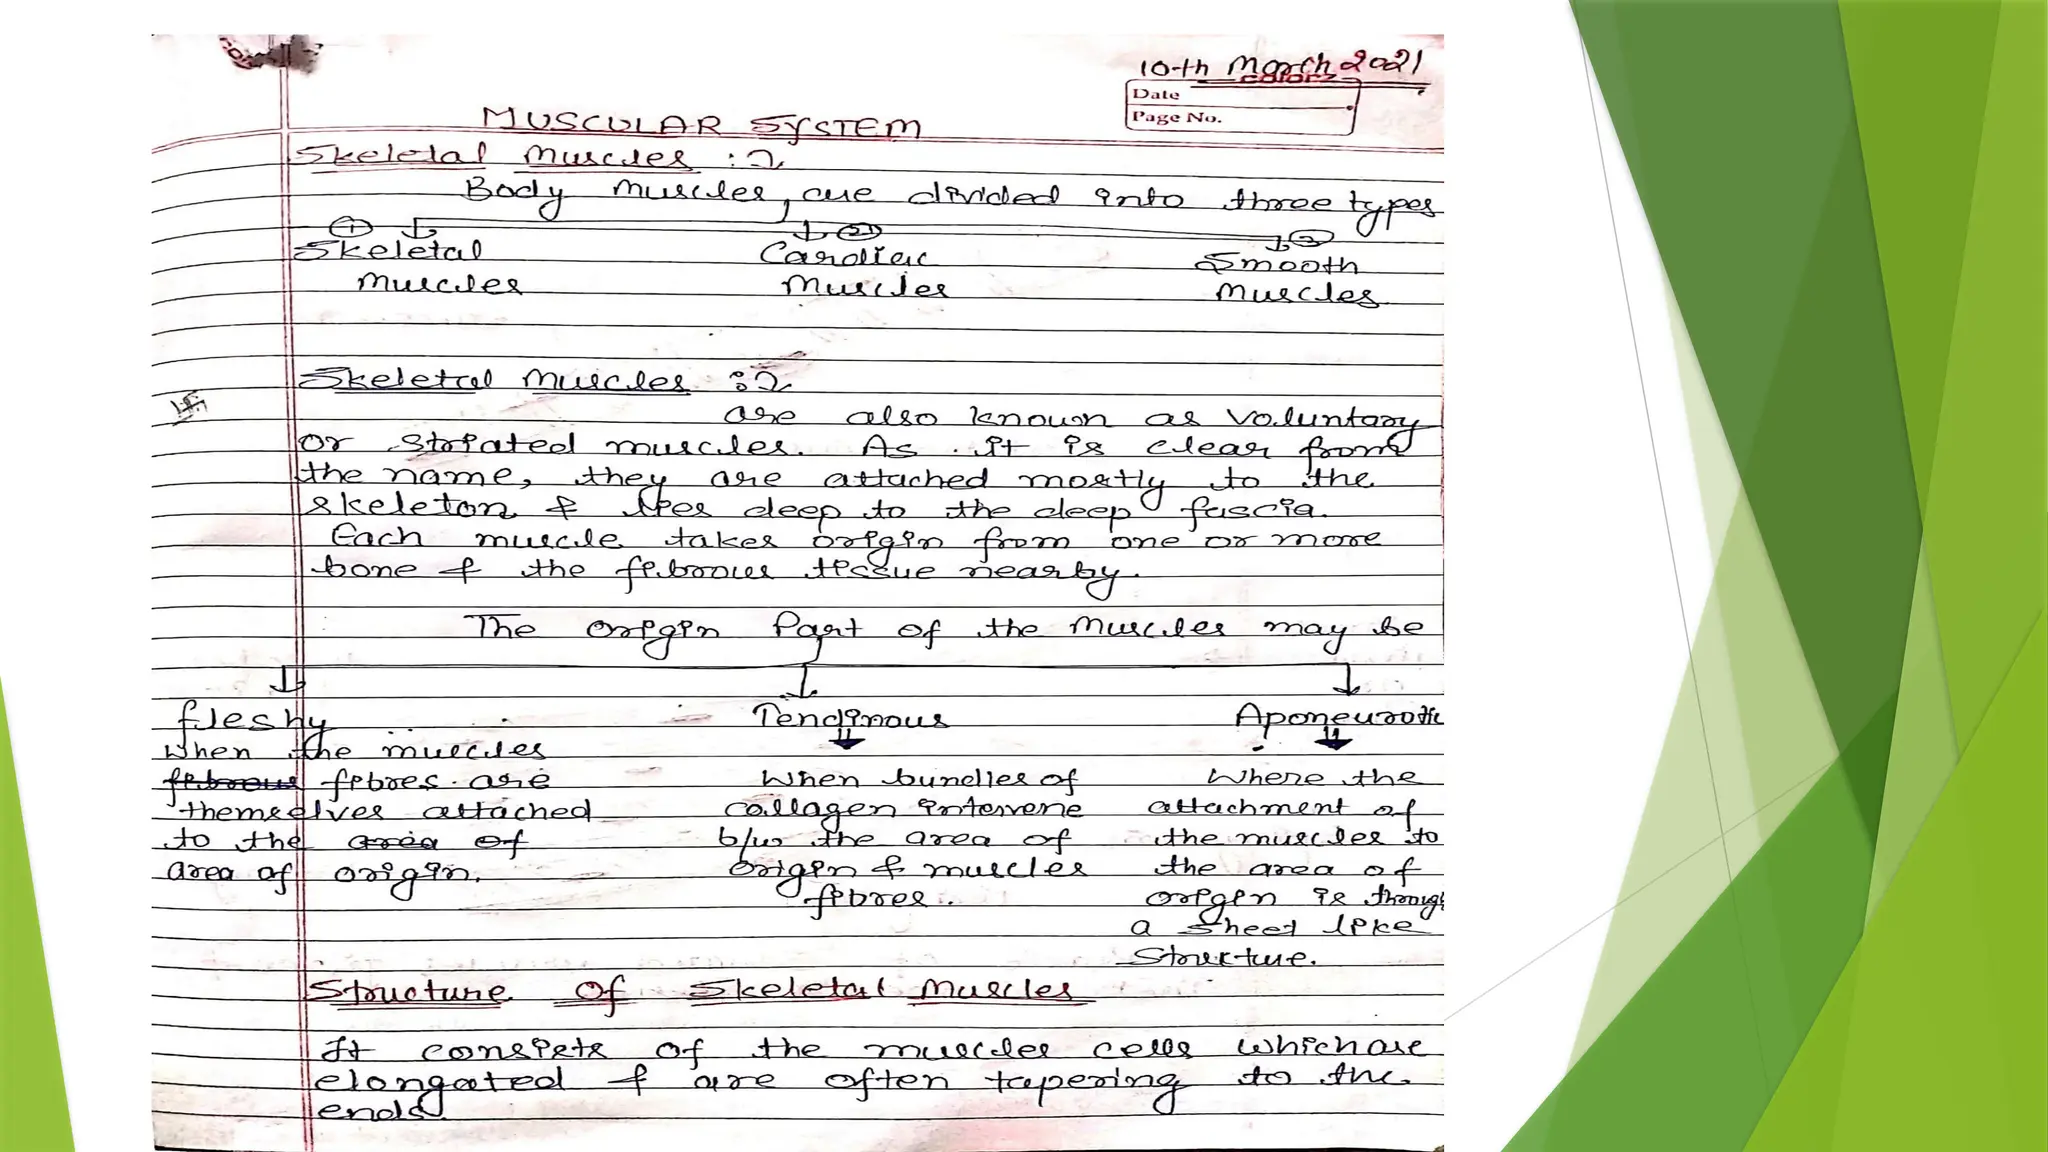 10th March 2021
Date
Page No.
MUSCULAR SYSTEM
Skeletal Muscles :
Body muscles are divided into three types
1 2 3
Skeletal Cardiac Smooth
Muscles Muscles Muscles
Skeletal Muscles :
are also known as Voluntary
or striated muscles. As it is clear from
the name, they are attached mostly to the
skeleton & lies deep to the deep fascia.
Each muscle takes origin from one or more
bone & the fibrous tissue nearby.
The origin Part of the Muscles may be
fleshy Tendinous Aponeurotic
when the muscles
fibrous fibres are When bundles of Where the
themselves attached collagen intervene attachment of
to the area of b/w the area of the muscles to
area of origin. origin & muscles the area of
fibres. origin is through
a sheet like
Structure.
Structure Of Skeletal Muscles
It consists of the muscles cells which are
elongated & are often tapering to the
ends.